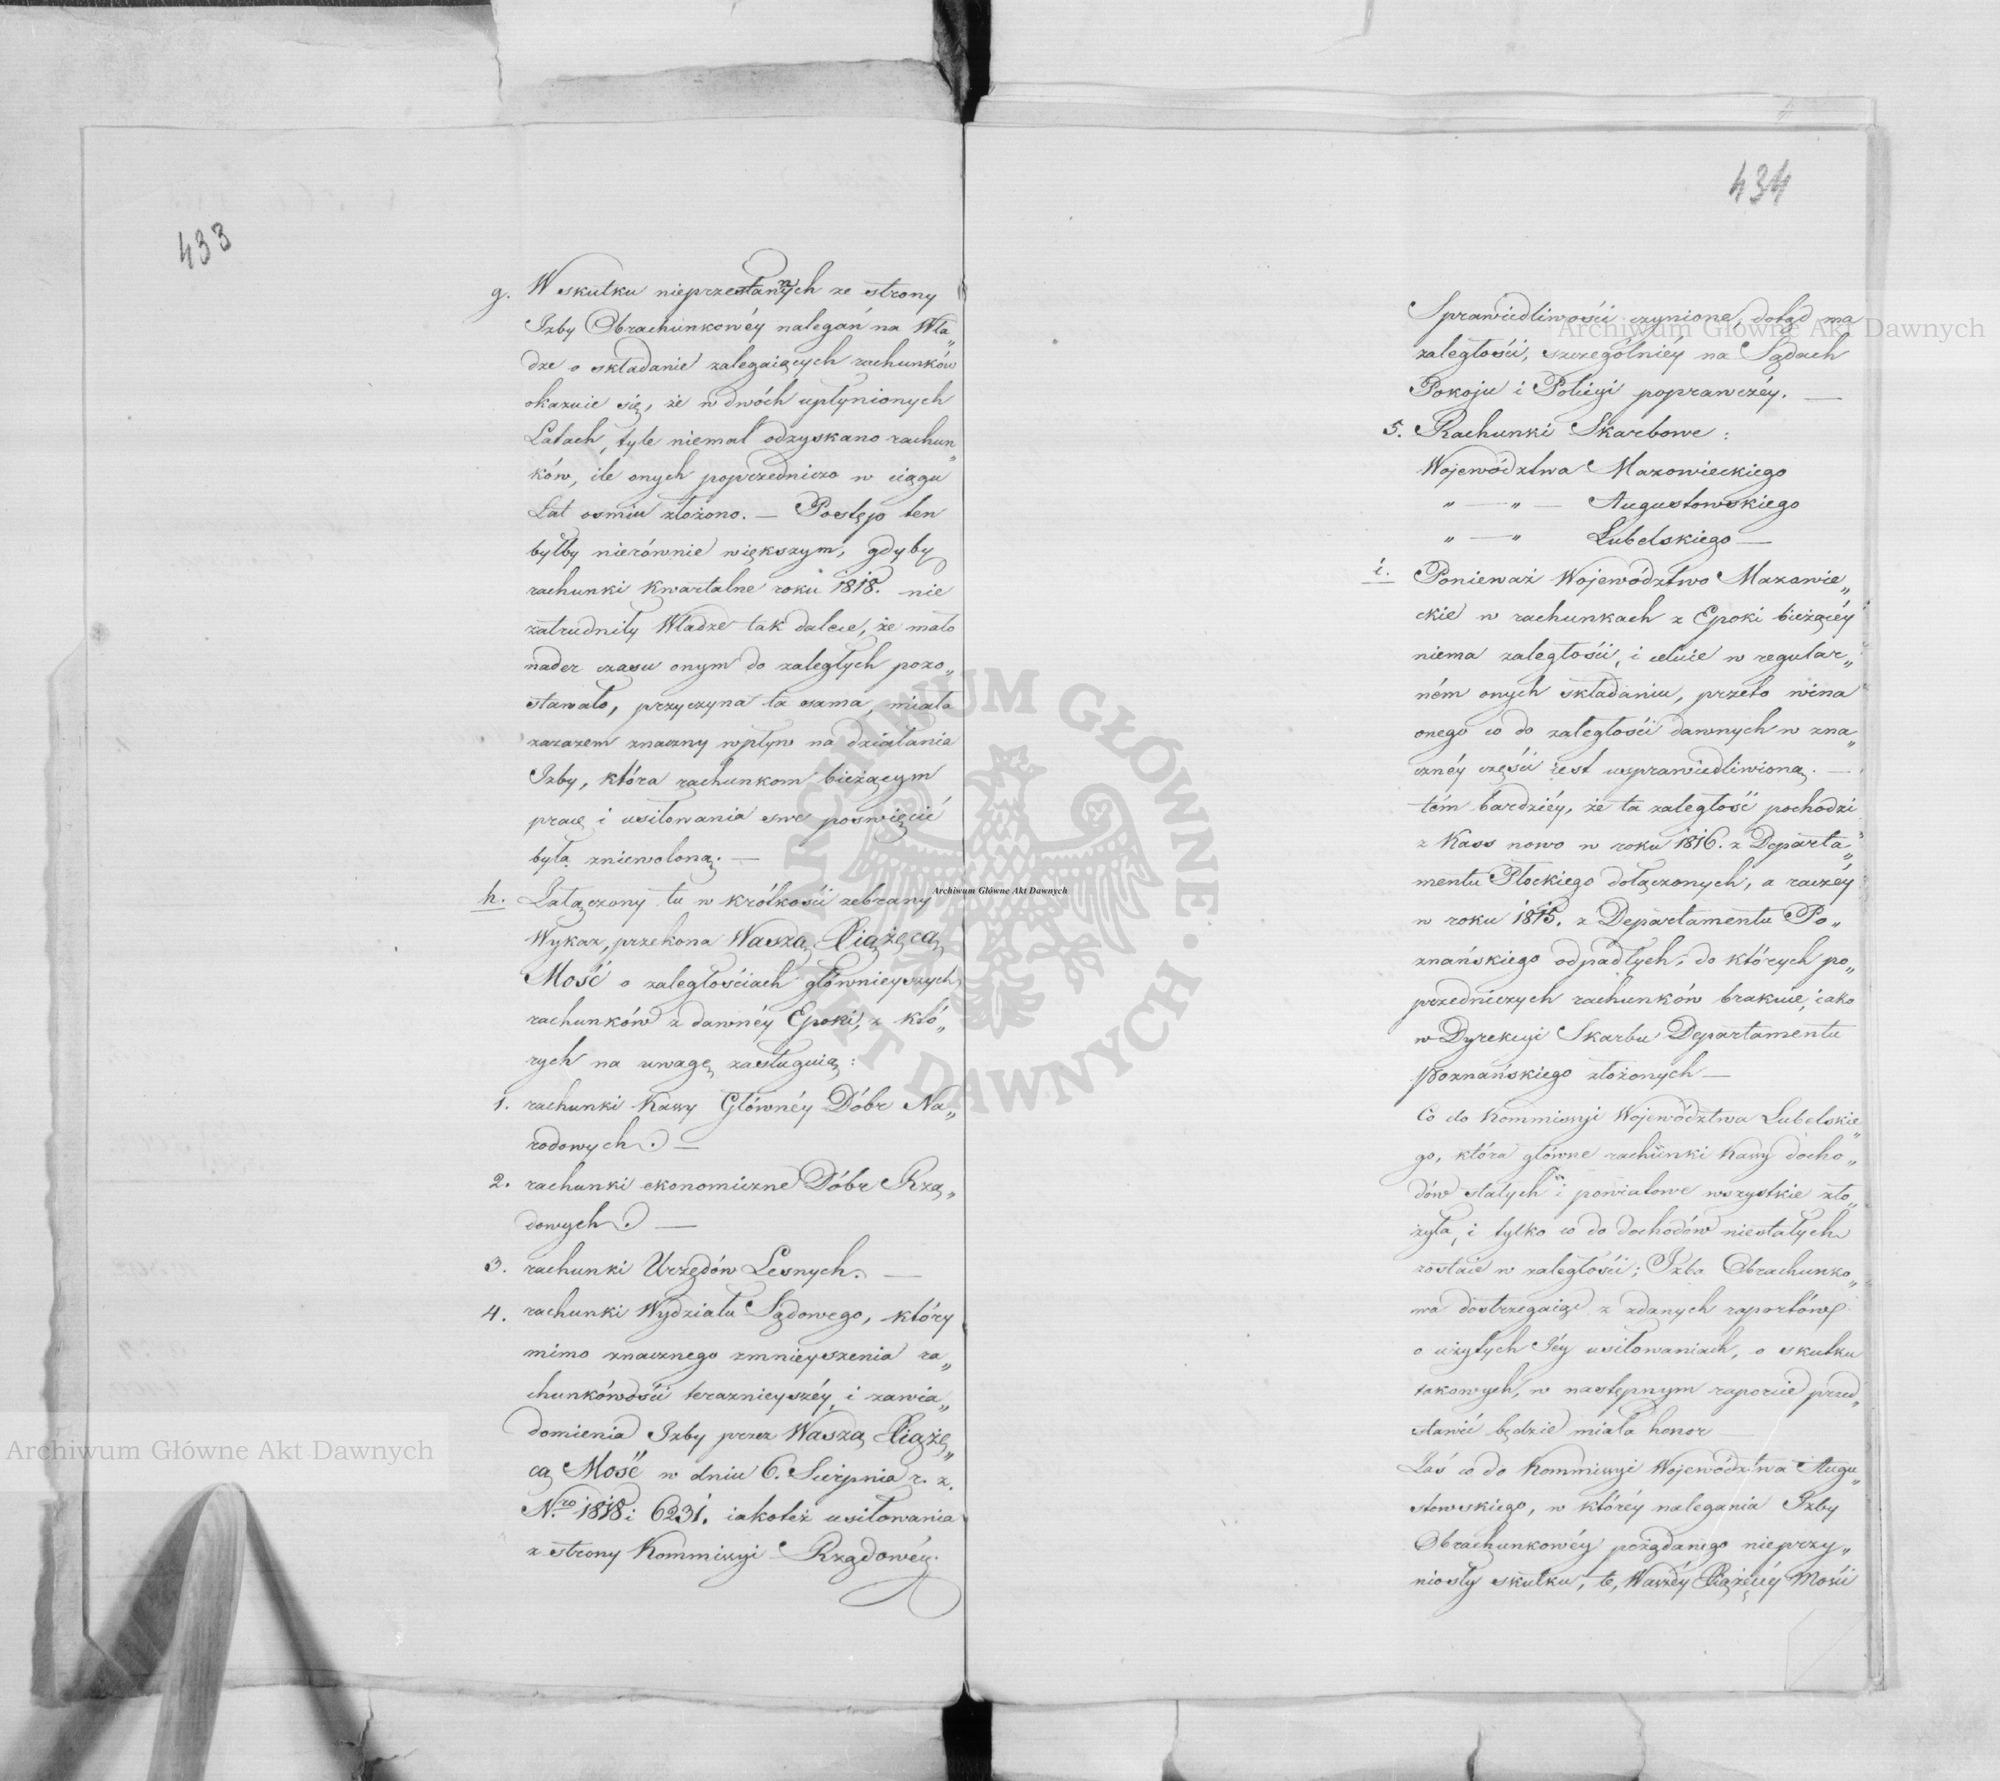 433
g. W skutku nieprzestannych ze strony
Izby Obrachunkowéy nalegań na Wła„
dze o składanie zalegaiących rachunków
okazuie się, że w dwóch upłynionych
Latach, tyle niemal odzyskano rachun„
ków, ile onych poprzedniczo w ciągu
Lat osmiu złożono. — Postęp ten
byłby nierównie większym, gdyby
rachunki kwartalne roku 1818. nie
zatrudniły Władze tak dalece, że mało
nader czasu onym do zaległych pozo„
stawało, przyczyna ta sama, miała
zarazem znaczny wpływ na działania
Izby, która rachunkom bieżącym
pracę i usiłowania swe poswięcić
była zniewoloną. —
h. Załączony tu w krótkości zebrany
Wykaz, przekona Waszą Xiążęcą
Mość o zaległościach głównieyszych
rachunków z dawnéy Epoki, z któ„
rych na uwagę zasługuią:
1. rachunki Kassy Głównéy Dóbr Na„
rodowych. —
2. rachunki ekonomiczne Dóbr Rzą„
dowych. —
3. rachunki Urzędów Lesnych. —
4. rachunki Wydziału Sądowego, który
mimo znacznego zmnieyszenia ra„
chunkówości teraznieyszéy, i zawia„
domienia Izby przez Waszą Xiążę„
cą Mość w dniu 6. Sierpnia r. z.
Nro 1818 i 6231. iakoteż usiłowania
z strony Kommissyi Rządowéy.
434
Sprawiedliwości czynione, dotąd ma
zaległości, szczególniéy na Sądach
Pokoju i Policyi poprawczéy. —
5. Rachunki Skarbowe:
Województwa Mazowieckiego
„ — „ — Augustowskiego
„ — „ Lubelskiego —
i. Ponieważ Województwo Mazowie„
ckie w rachunkach z Epoki bieżącéy
niema zaległości, i celuie w regular„
ném onych składaniu, przeto wina
onego co do zaległości dawnych w zna„
cznéy części iest usprawiedliwioną. —
tém bardziéy, że ta zaległość pochodzi
z Kass nowo w roku 1816. z Departa„
mentu Płockiego dołączonych, a raczéy
w roku 1815. z Departamentu Po„
znańskiego odpadłych, do których po„
przedniczych rachunków brakuie, iako
w Dyrekcyi Skarbu Departamentu
Poznańskiego złożonych —
Co do Kommissyi Województwa Lubelskie„
go, która główne rachunki Kassy docho„
dów stałych i powiatowe wszystkie zło„
żyła, i tylko co do dochodów niestałych
zostaie w zaległości; Izba Obrachunko„
wa dostrzegaiąc z zdanych raportów
o użytych Jéy usiłowaniach, o skutku
takowych, w następnym raporcie przed„
stawić będzie miała honor —
Zaś co do Kommissyi Województwa Augu„
stowskiego, w któréy nalegania Izby
Obrachunkowéy pożądanego nieprzy„
niosły skutku, te, Waszéy Xiążęcéy Mości
Archiwum Główne Akt Dawnych
Archiwum Główne Akt Dawnych
Archiwum Główne Akt Dawnych
ARCHIWUM GŁÓWNE · AKT DAWNYCH ·